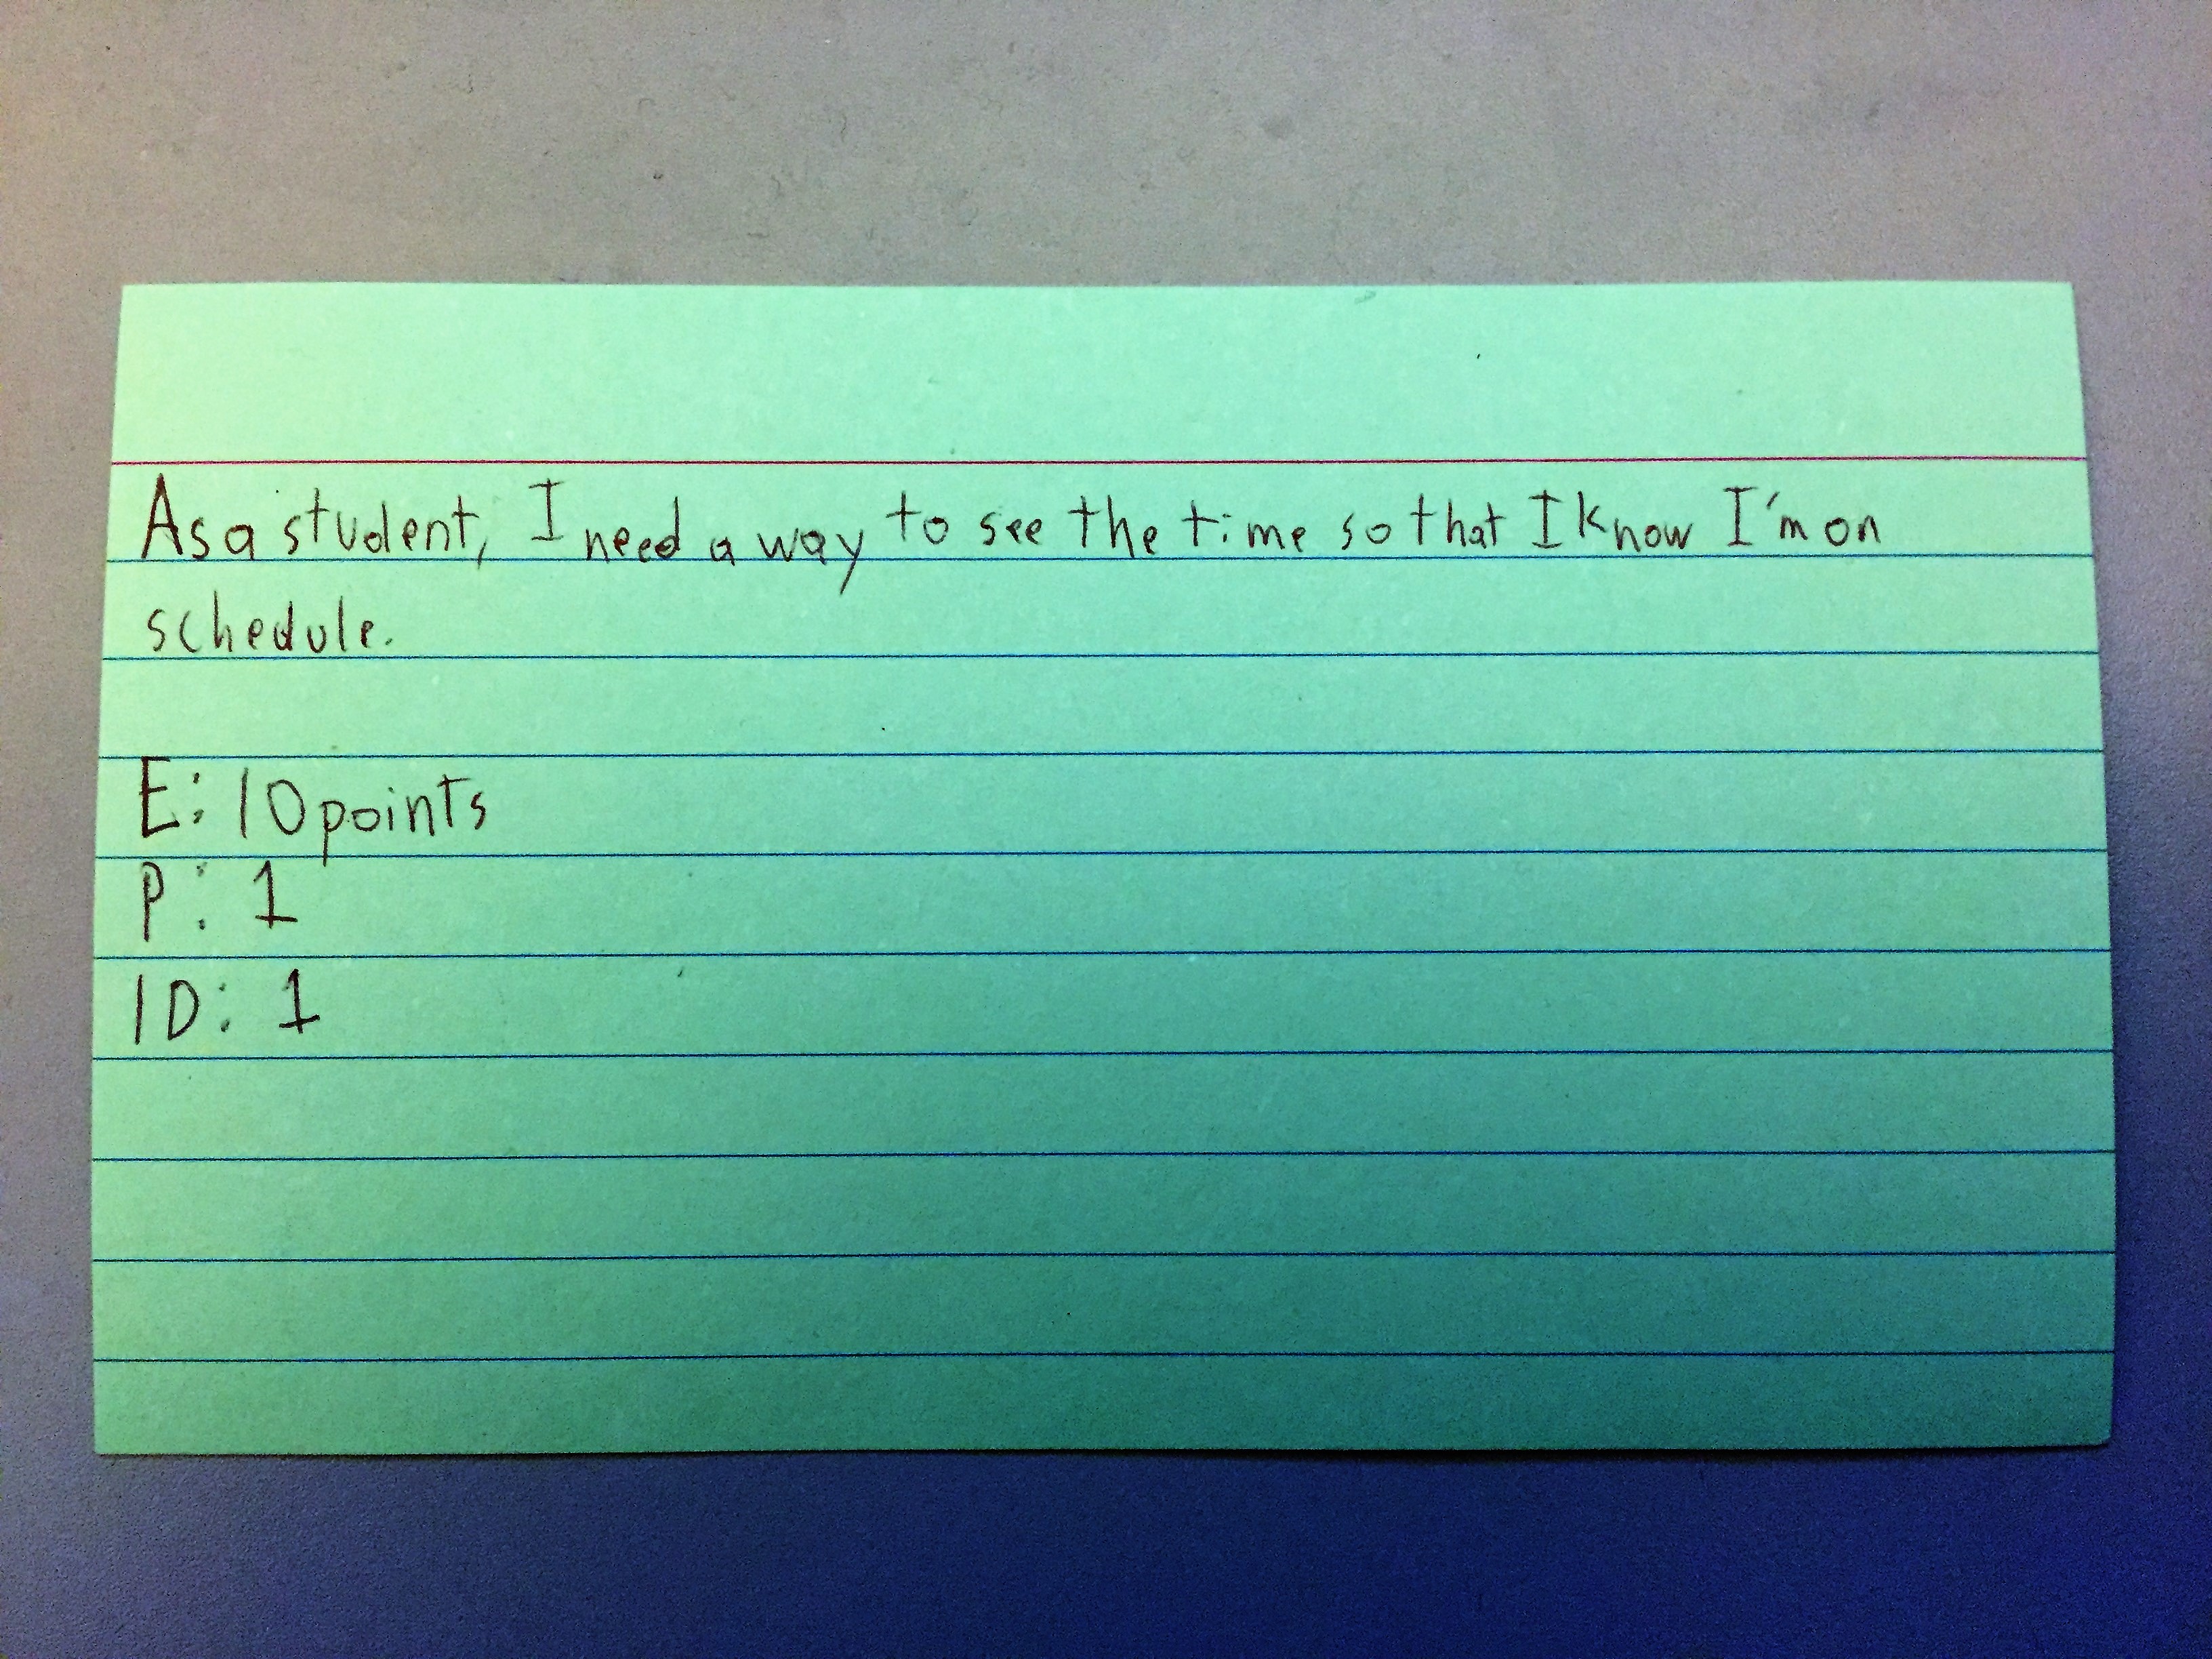 As a student, I need a way to see the time so that I know I'm on
schedule.
E: 10 points
P: 1
ID: 1